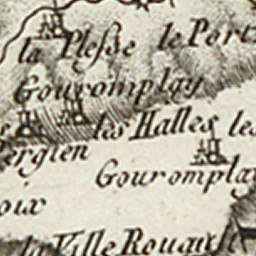 la Plesse le Port
Gouromplay
les Halles les
ergien
Gouromplay
oix
la Ville Rouault